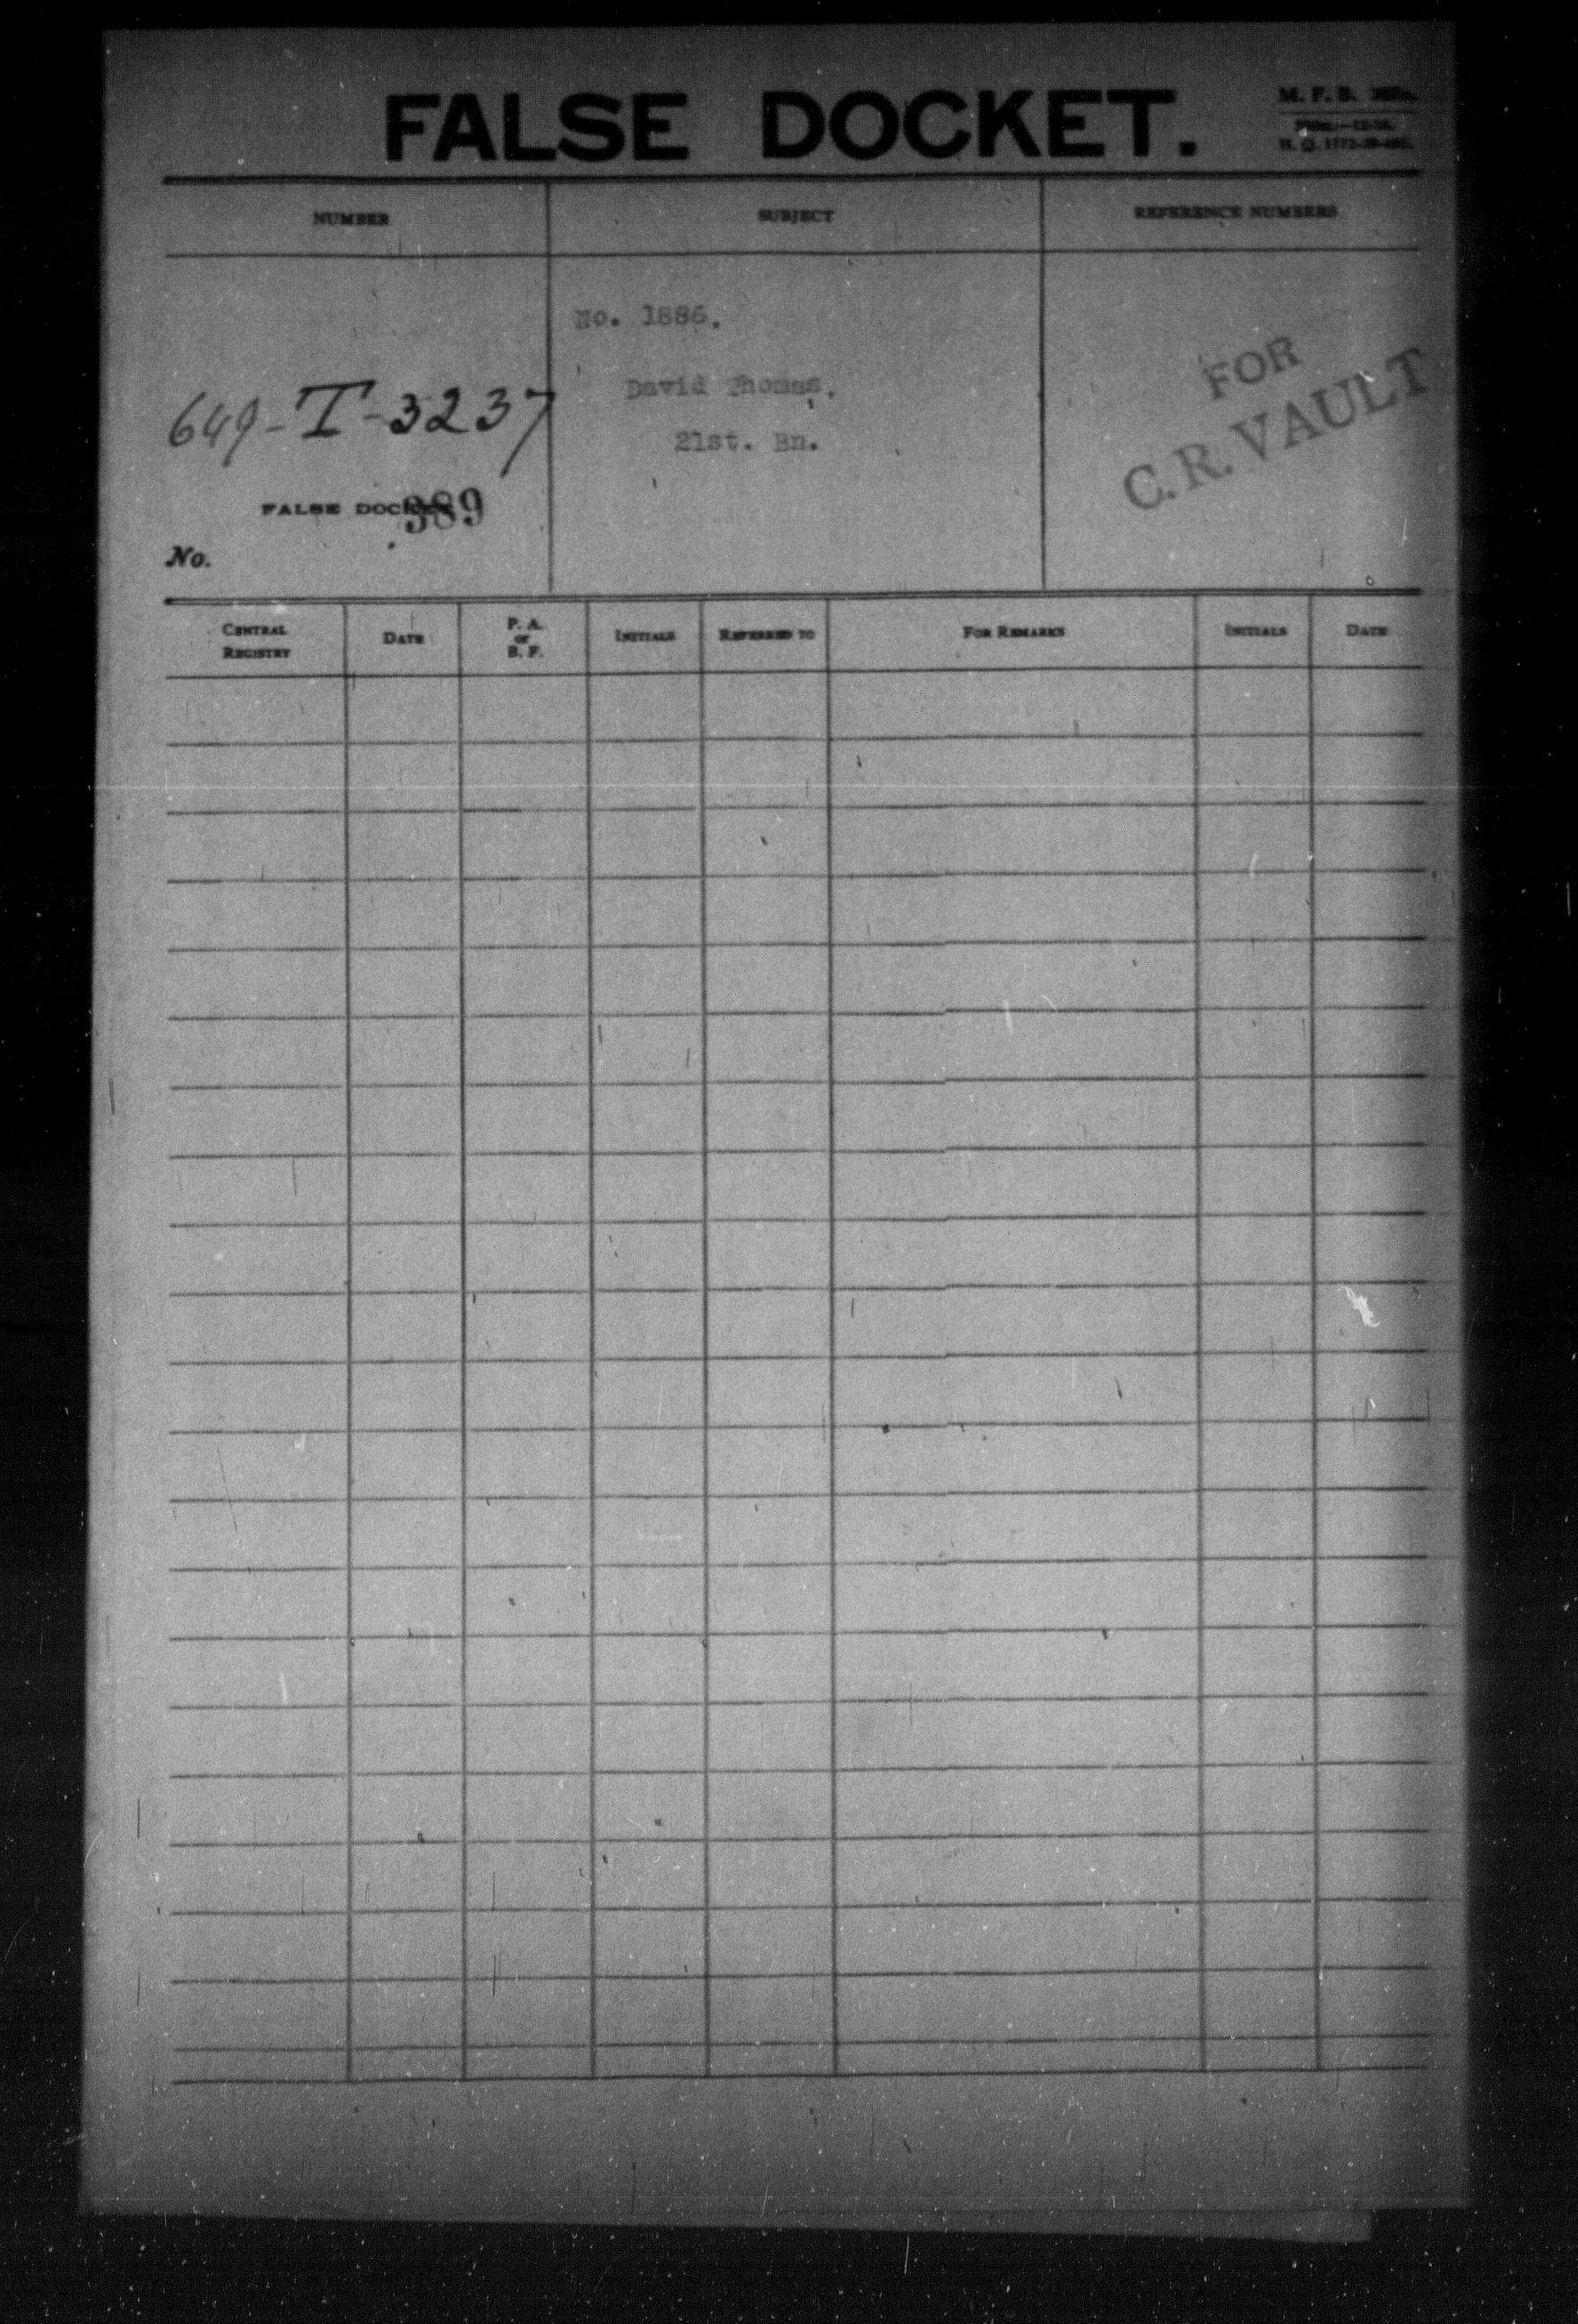 FALSE DOCKET.
M. F. B.
H. Q. 1772-39-
NUMBER
SUBJECT
REFERENCE NUMBERS
No. 1886.
David Thomas.
21st. Bn.
649-T-3237
FALSE DOCKET 389
No.
FOR
C. R. VAULT
CENTRAL REGISTRY
DATE
P. A. or B. F.
INITIALS
REFERRED TO
FOR REMARKS
INITIALS
DATE